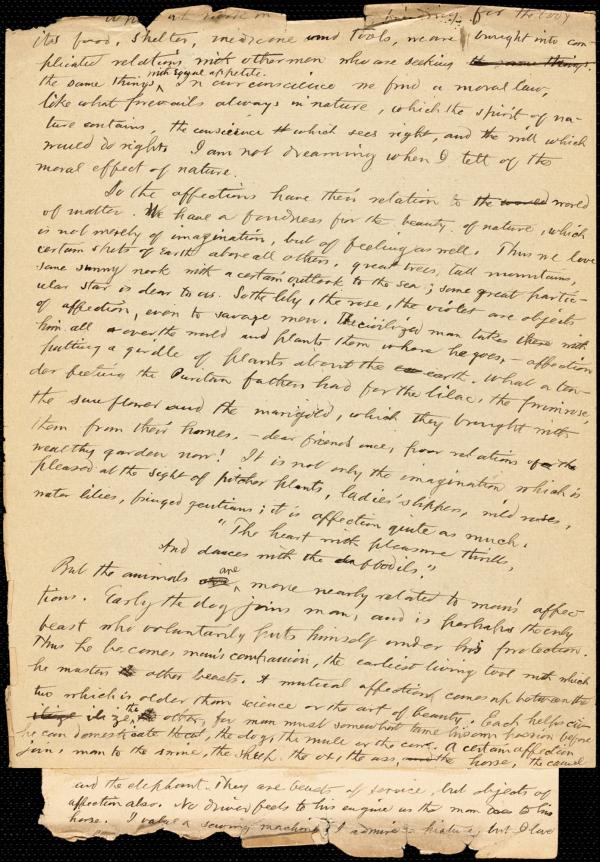 for the body
its food, shelter, medicine and tools, we are brought into com-
plicated relations with other men who are seeking the same things.
the same things, with equal appetite. In our conscience we find a moral law,
like what prevails always in nature, which the spirit of na-
ture contains, the conscience which sees right, and the will which
would do right. I am not dreaming when I tell of the
moral effect of nature.
So the affections have their relation to the world world
of matter. We have a fondness for the beauty of nature, which
is not merely of imagination, but of feeling as well. Thus we love
certain spots of Earth above all others; great trees, tall mountains,
some sunny nook with a certain outlook to the sea; some great partic-
ular star is dear to us. So the lily, the rose, the violet are objects
of affection, even to savage men. The civilized man takes these with
him all over the world and plants them where he goes, - affection
putting a girdle of plants about the earth. What a ten-
der feeling the Puritan fathers had for the lilac, the primrose,
the sunflower and the marigold, which they brought with
them from their homes, - dear friends once, poor relations of the
wealthy garden now! It is not only the imagination which is
pleased at the sight of pitcher plants, ladies' slippers, wild roses,
water lilies, fringed gentians; it is affection quite as much.
"The heart with pleasure thrills,
And dances with the daffodils."
But the animals are more nearly related to man's affec-
tions. Early the dog joins man, and is perhaps the only
beast who voluntarily puts himself under his protection.
Thus he becomes man's companion, the earliest living tool with which
he masters other beasts. A mutual affection comes up between the
two which is older than science or the art of beauty. Each helps civ-
ilize the other, for man must somewhat tame his own passion before
he can domesticate the cat, the dog, the mule or the cow. A certain affection
joins man to the swine, the sheep, the ox, the ass, the horse, the camel
and the elephant. They are beasts of service, but objects of
affection also. No driver feels to his engine as the man does to his
horse. I value a sewing machine, I admire a picture, but I love